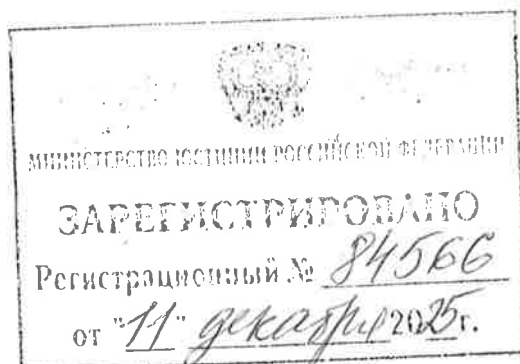 МИНИСТЕРСТВО ЮСТИЦИИ РОССИЙСКОЙ ФЕДЕРАЦИИ
ЗАРЕГИСТРИРОВАНО
Регистрационный № 84566
от "11" декабря 2025 г.